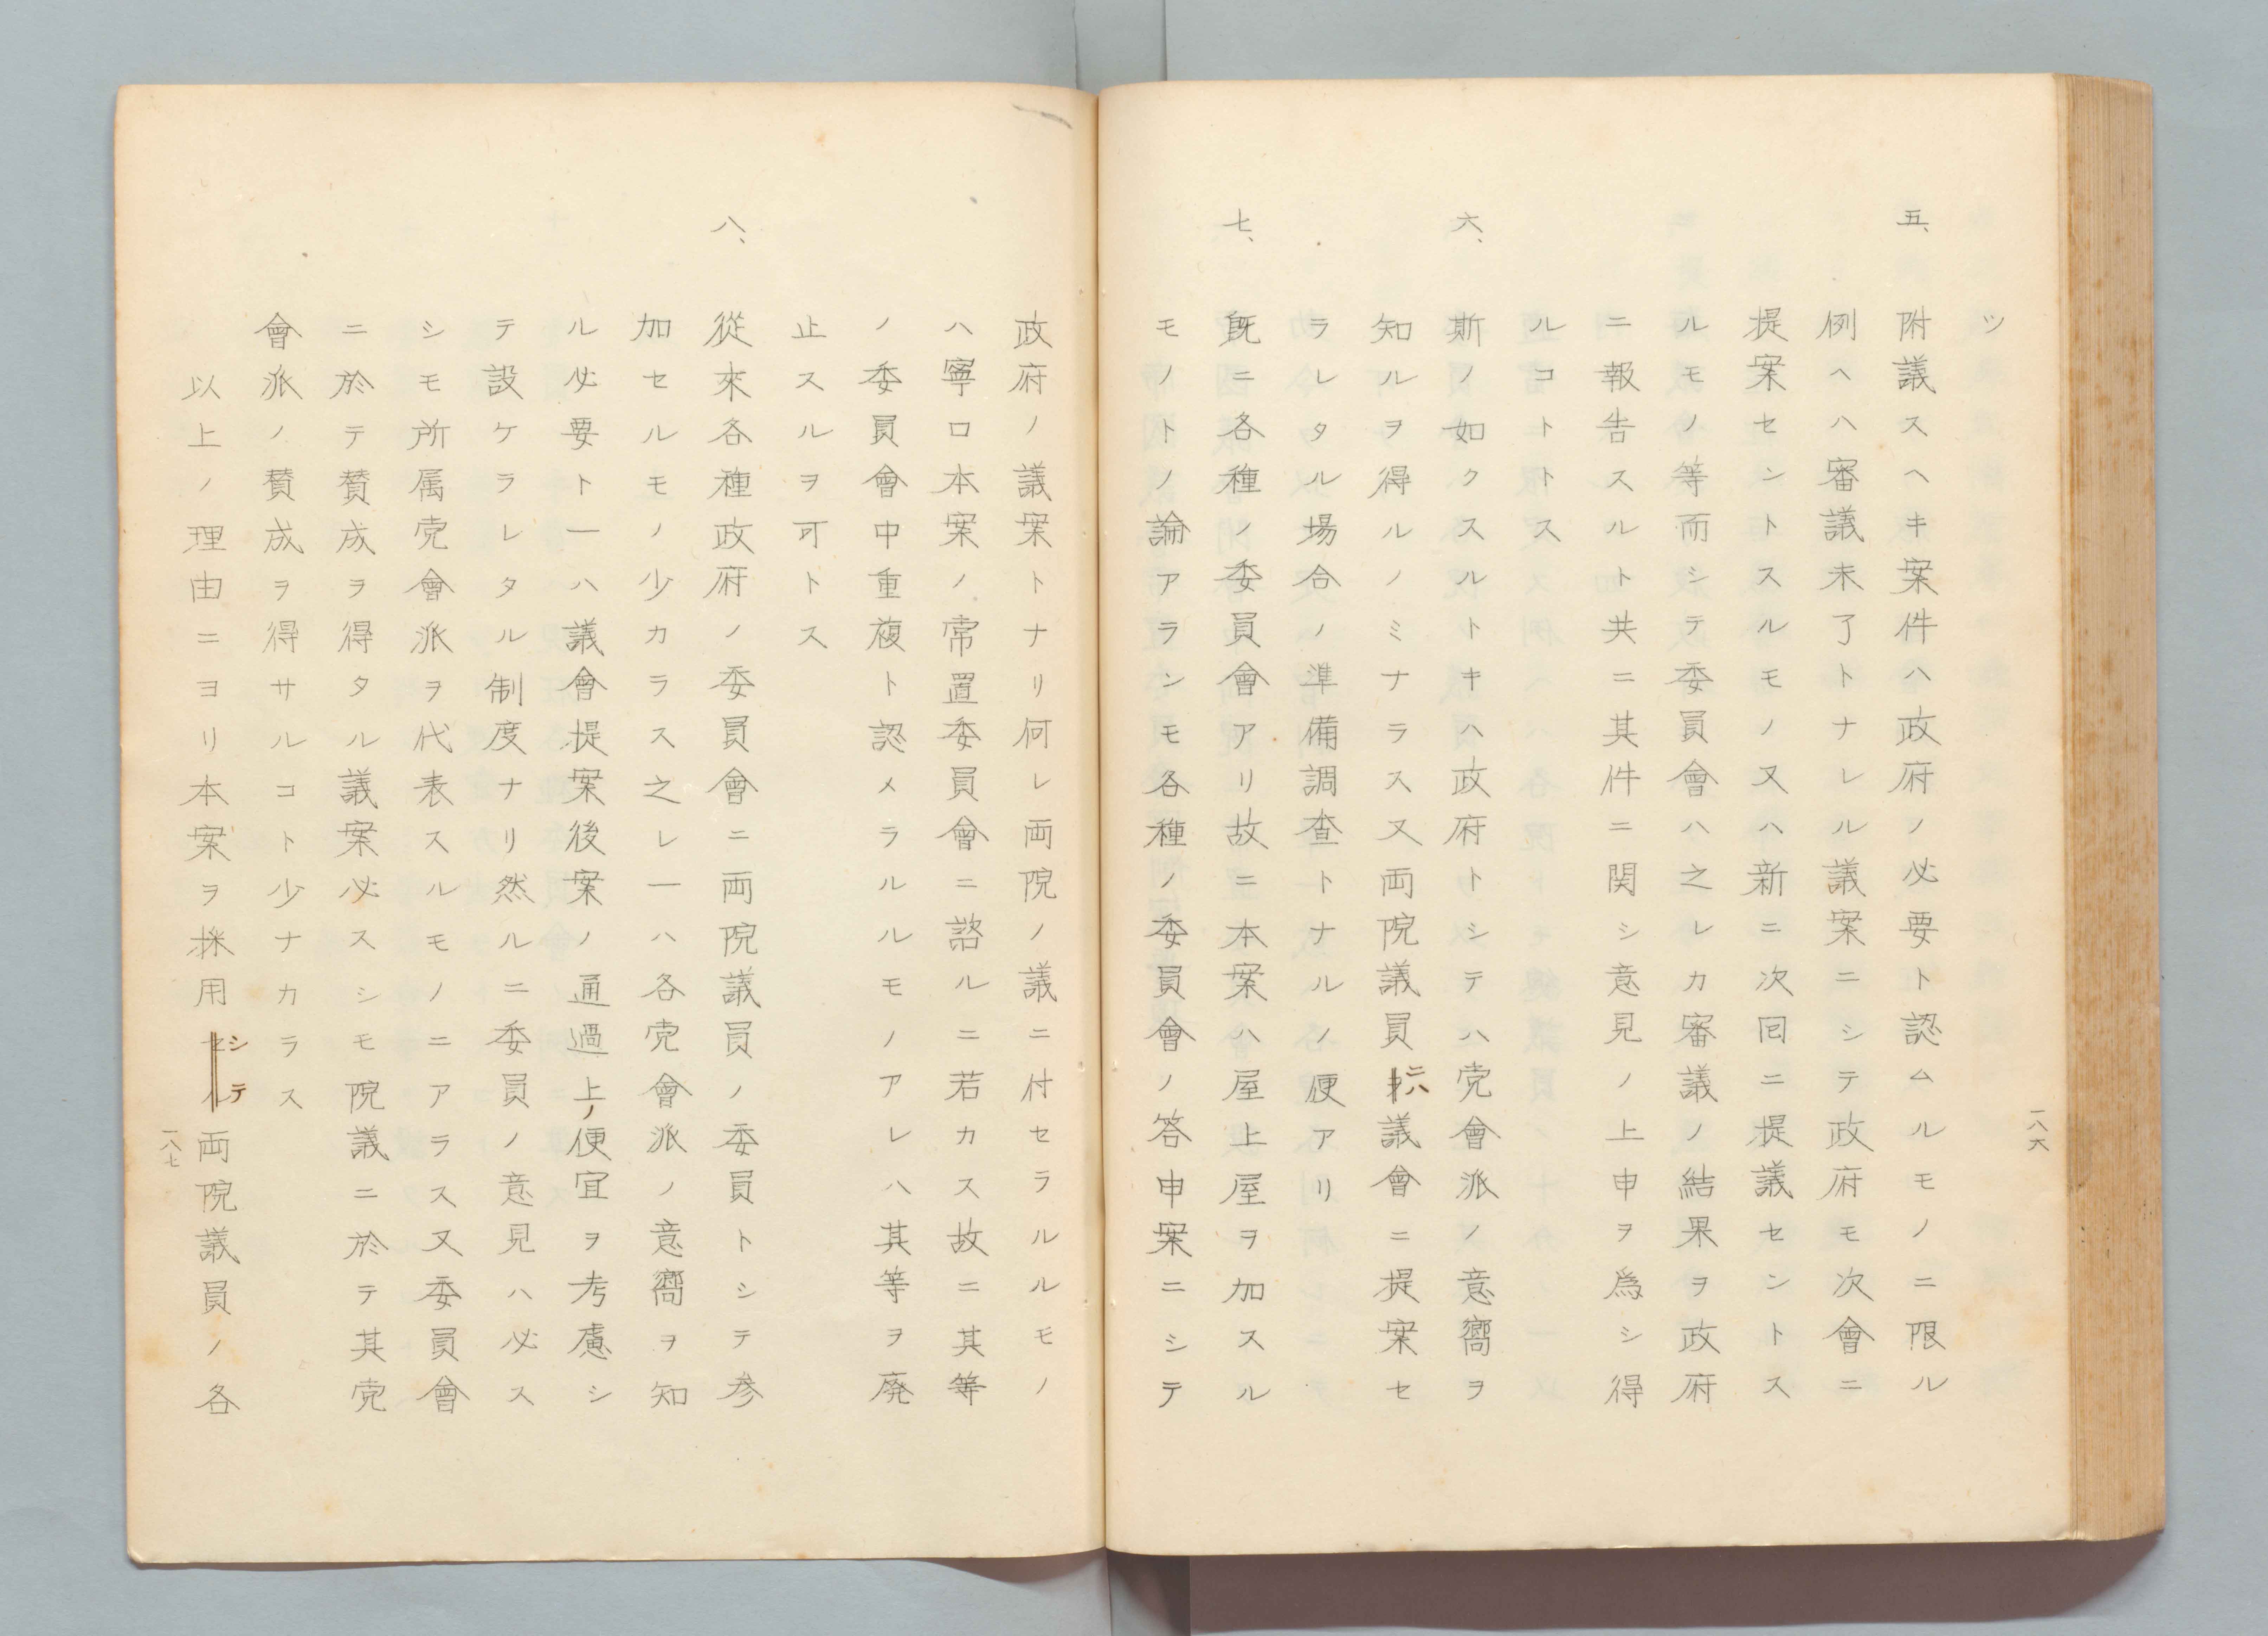 ツ
五、附議スヘキ案件ハ政府ノ必要ト認ムルモノニ限ル
例ヘハ審議未了トナレル議案ニシテ政府モ次會ニ
提案セントスルモノ又ハ新ニ次回ニ提議セントス
ルモノ等而シテ委員會ハ之レカ審議ノ結果ヲ政府
ニ報告スルト共ニ其件ニ関シ意見ノ上申ヲ為シ得
ルコトトス
六、斯ノ如クスルトキハ政府トシテハ党會派ノ意嚮ヲ
知ルヲ得ルノミナラス又両院議員ニハ議會ニ提案セ
ラレタル場合ノ準備調査トナルノ便アリ
七、既ニ各種ノ委員會アリ故ニ本案ハ屋上屋ヲ加スル
モノトノ論アランモ各種ノ委員會ノ答申案ニシテ
一八六
政府ノ議案トナリ何レ両院ノ議ニ付セラルルモノ
ハ寧ロ本案ノ常置委員會ニ諮ルニ若カス故ニ其等
ノ委員會中重複ト認メラルルモノアレハ其等ヲ廃
止スルヲ可トス
八、従來各種政府ノ委員會ニ両院議員ノ委員トシテ参
加セルモノ少カラス之レ一ハ各党會派ノ意嚮ヲ知
ル必要ト一ハ議會提案後案ノ通過上ノ便宜ヲ考慮シ
テ設ケラレタル制度ナリ然ルニ委員ノ意見ハ必ス
シモ所属党會派ヲ代表スルモノニアラス又委員會
ニ於テ賛成ヲ得タル議案必スシモ院議ニ於テ其党
會派ノ賛成ヲ得サルコト少ナカラス
以上ノ理由ニヨリ本案ヲ採用シテ両院議員ノ各
一八七